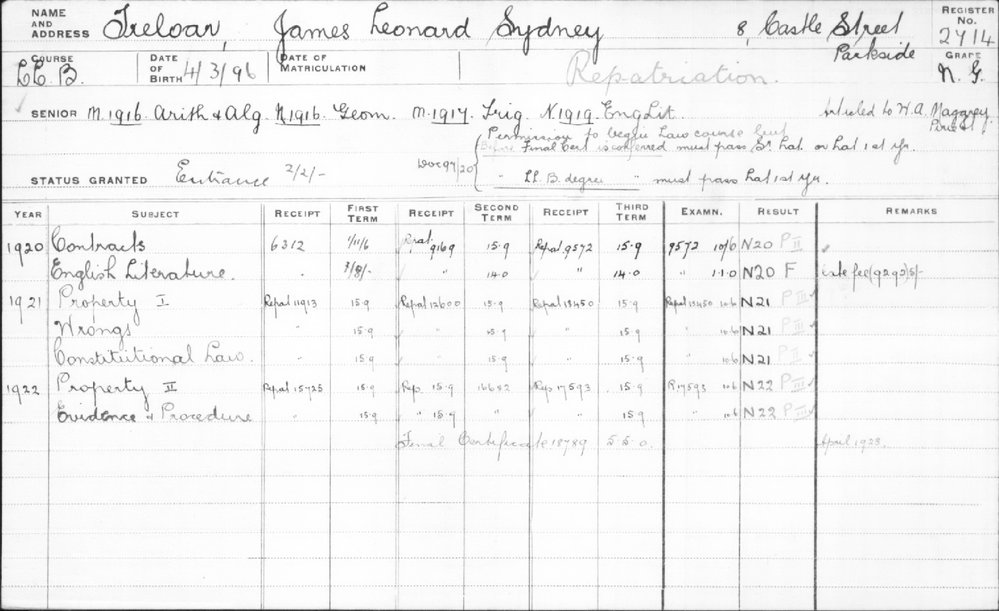 NAME AND ADDRESS Treloar, James Leonard Sydney 8, Castle Street Parkside REGISTER No. 2714
COURSE LL.B. DATE OF BIRTH 4/3/96 DATE OF MATRICULATION Repatriation. GRADE N.G.
SENIOR M.1916. Arith & Alg. N.1916. Geom. M.1917. Trig. N.1919. Eng Lit. Articled to W.A. Magarey
Permission to begin Law course but
Before Final Cert is conferred must pass Sr Lat. or Lat 1st Yr.
STATUS GRANTED Entrance 2/2/- " LL.B. degree " must pass Lat 1st Yr.
YEAR SUBJECT RECEIPT FIRST TERM RECEIPT SECOND TERM RECEIPT THIRD TERM EXAMN. RESULT REMARKS
1920 Contracts 6312 1/11/6 9169 15.9 Repat. 9572 15.9 9572 10/6 N20 P II
English Literature. " " 14.0 " 14.0 " 1.1.0 N20 F Late fee (9292) 5/-
1921 Property I Repat 11913 15.9 Repat 12600 15.9 Repat 13450 15.9 Repat 13450 10.6 N21 P III
Wrongs " 15.9 " 15.9 " 15.9 " 10.6 N21 P III
Constitutional Law. " 15.9 " 15.9 " 15.9 " 10.6 N21 P III
1922 Property II Repat 15725 15.9 Rep. 15.9 16652 Rep 17593 15.9 R17593 10.6 N22 P III
Evidence & Procedure " 15.9 " 15.9 " " 15.9 " 10.6 N22 P III
Final Certificate 18789 5.5.0. April 1923.